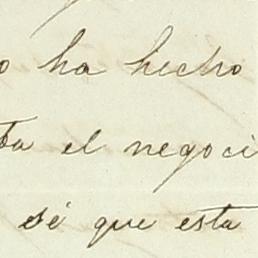 o ha hecho
ta el negoci
sé que esta